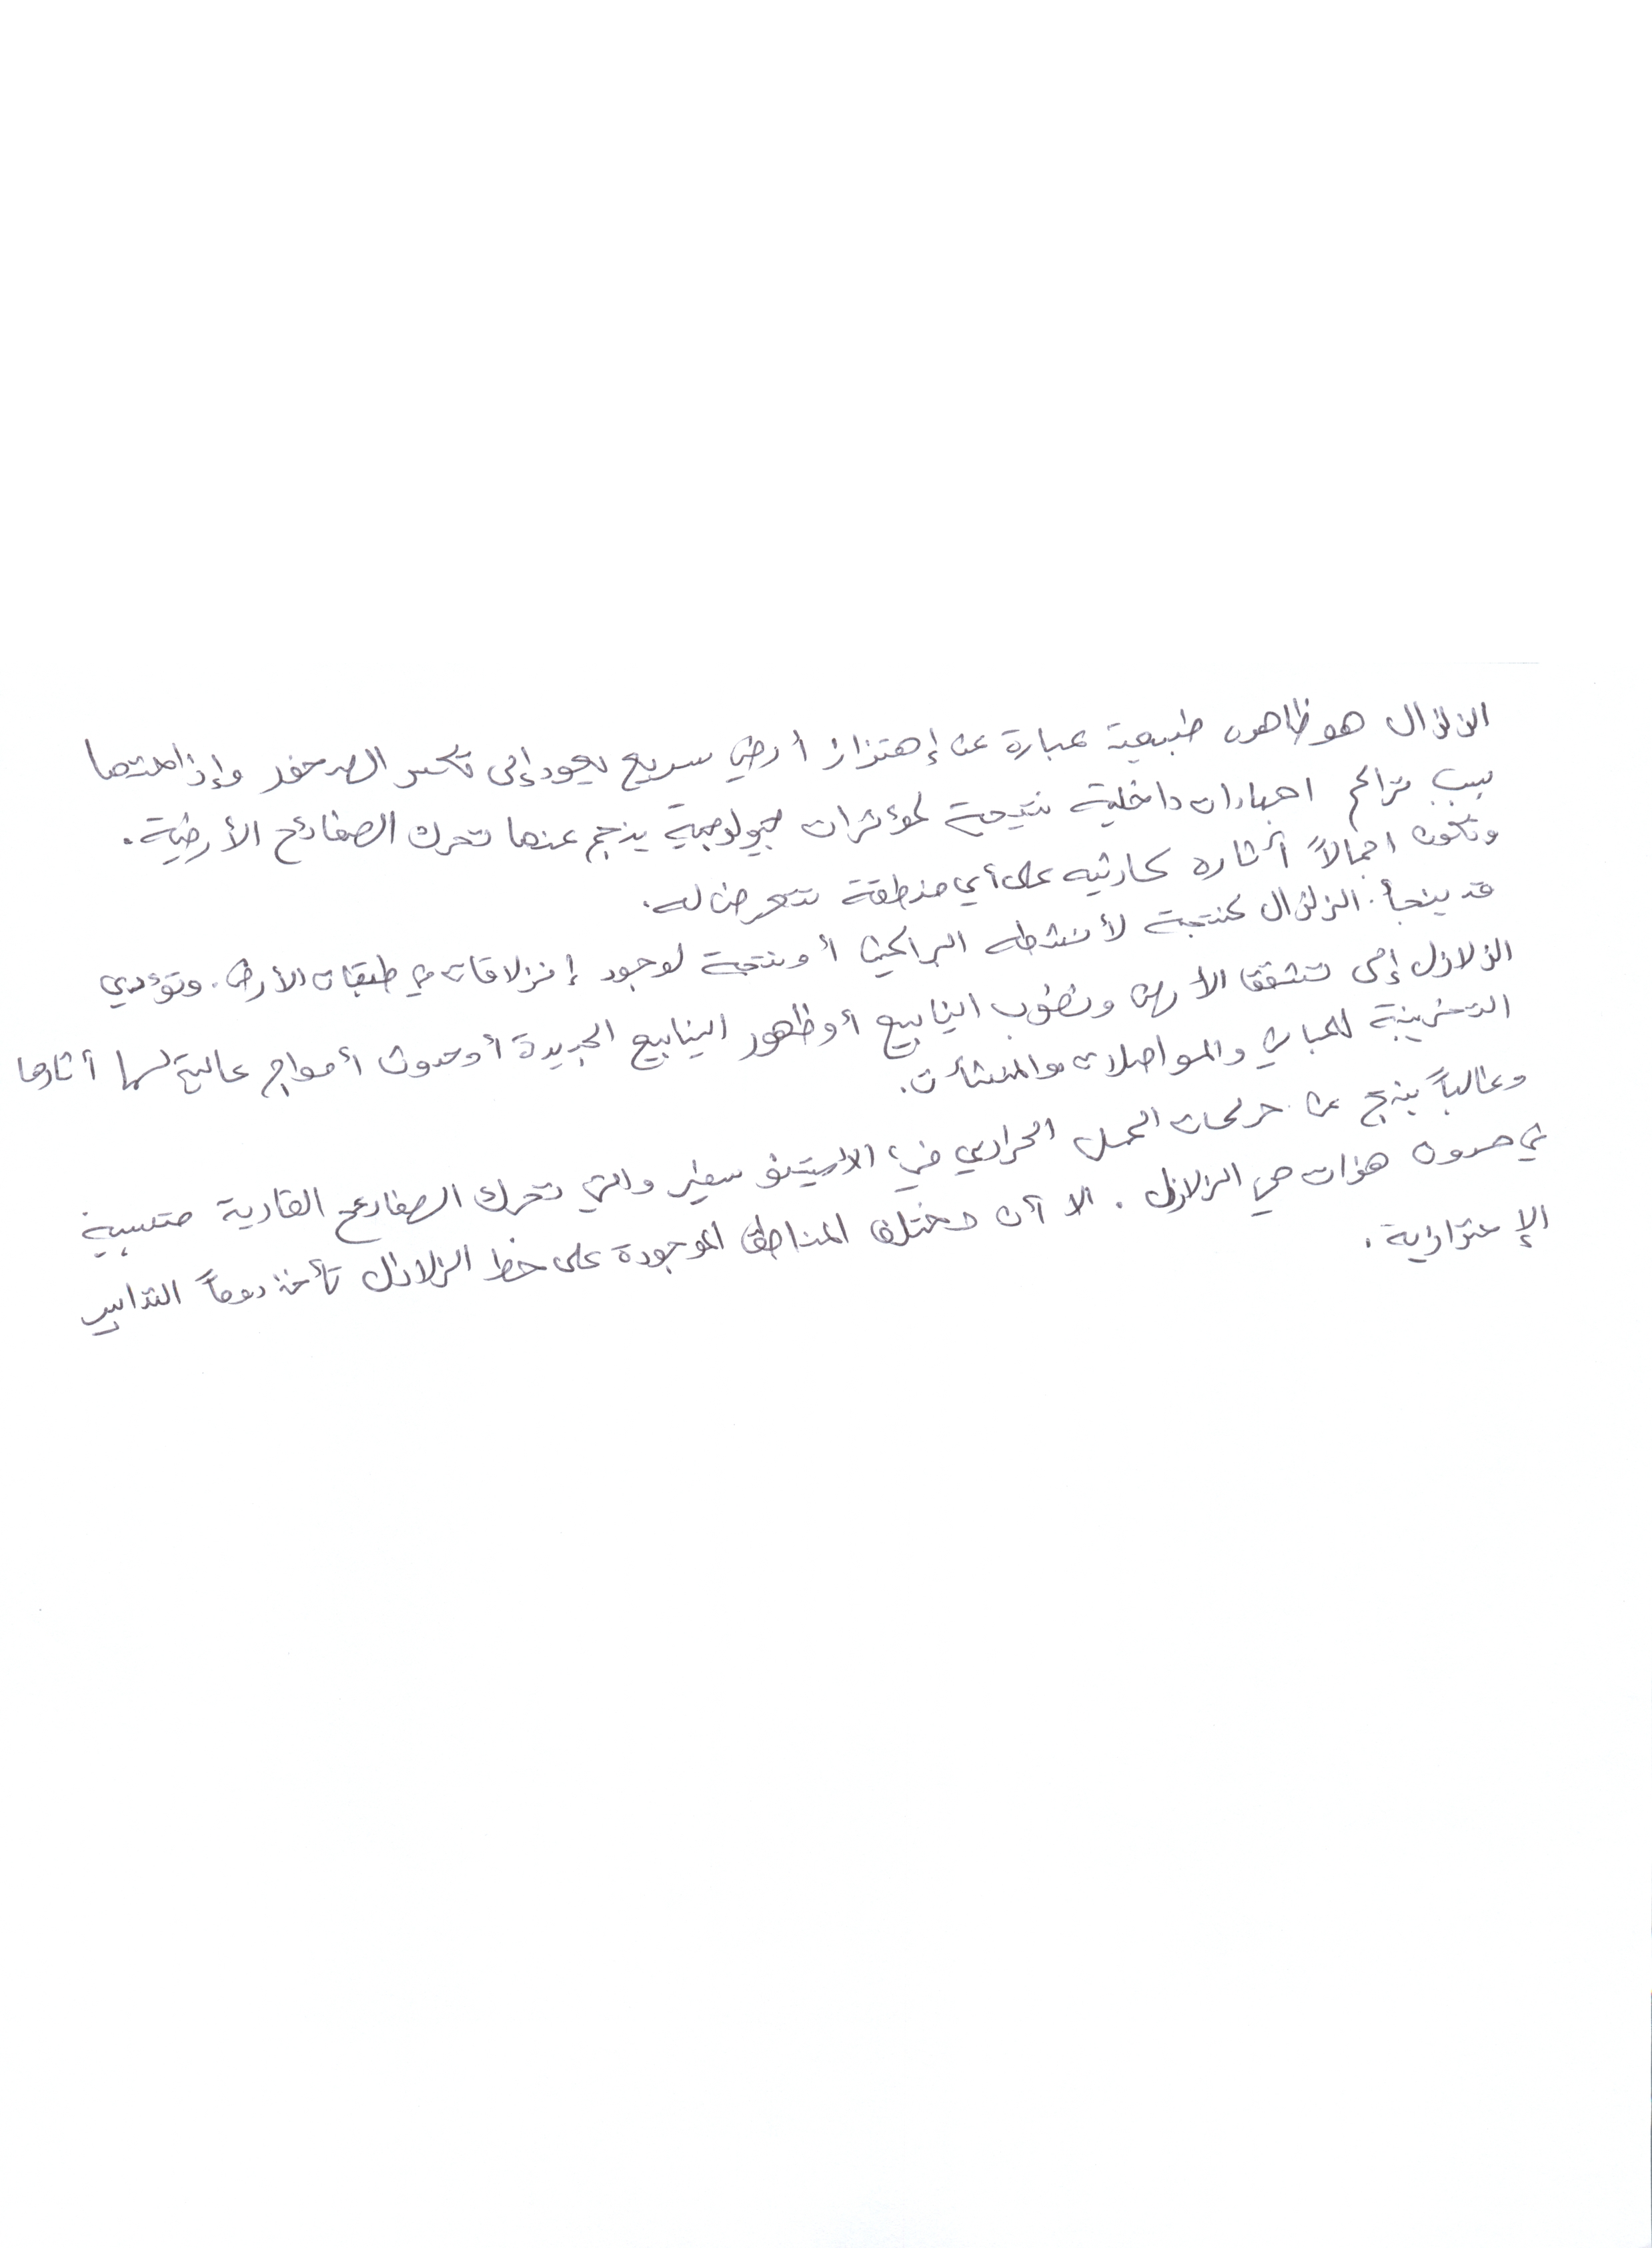 الزلزال هو ظاهرة طبيعية عبارة عن إهتزاز أرضي سريع يعود إلى تكسر الصخور وإزاحتها
بسبب تراكم اجهادات داخلية نتيجة لمؤثرات جيولوجية ينجم عنها تحرك الصفائح الأرضية.
وتكون اجمالاً أثاره كارثيه على أي منطقة تتعرض له.
قد ينشأ الزلزال كنتيجة لأنشطه البراكين أو نتيجة لوجود إنزلاقات في طبقات الأرض. وتؤدي
الزلازل إلى تشقق الأرض ونضوب الينابيع أو ظهور الينابيع الجديدة أو حدوث أمواج عالية لها أثارها
التخريبية للمباني والمواصلات والمنشأت.
وغالباً ينتج عن حركات الحمل الحراري في الاستينوسفير والتي تحرك الصفائح القارية متسببة
في حدوث هزات هي الزلازل. الا أن مختلف المناطق الموجودة على خط الزلازل تأخذ دوماً التدابير
الإحترازية.